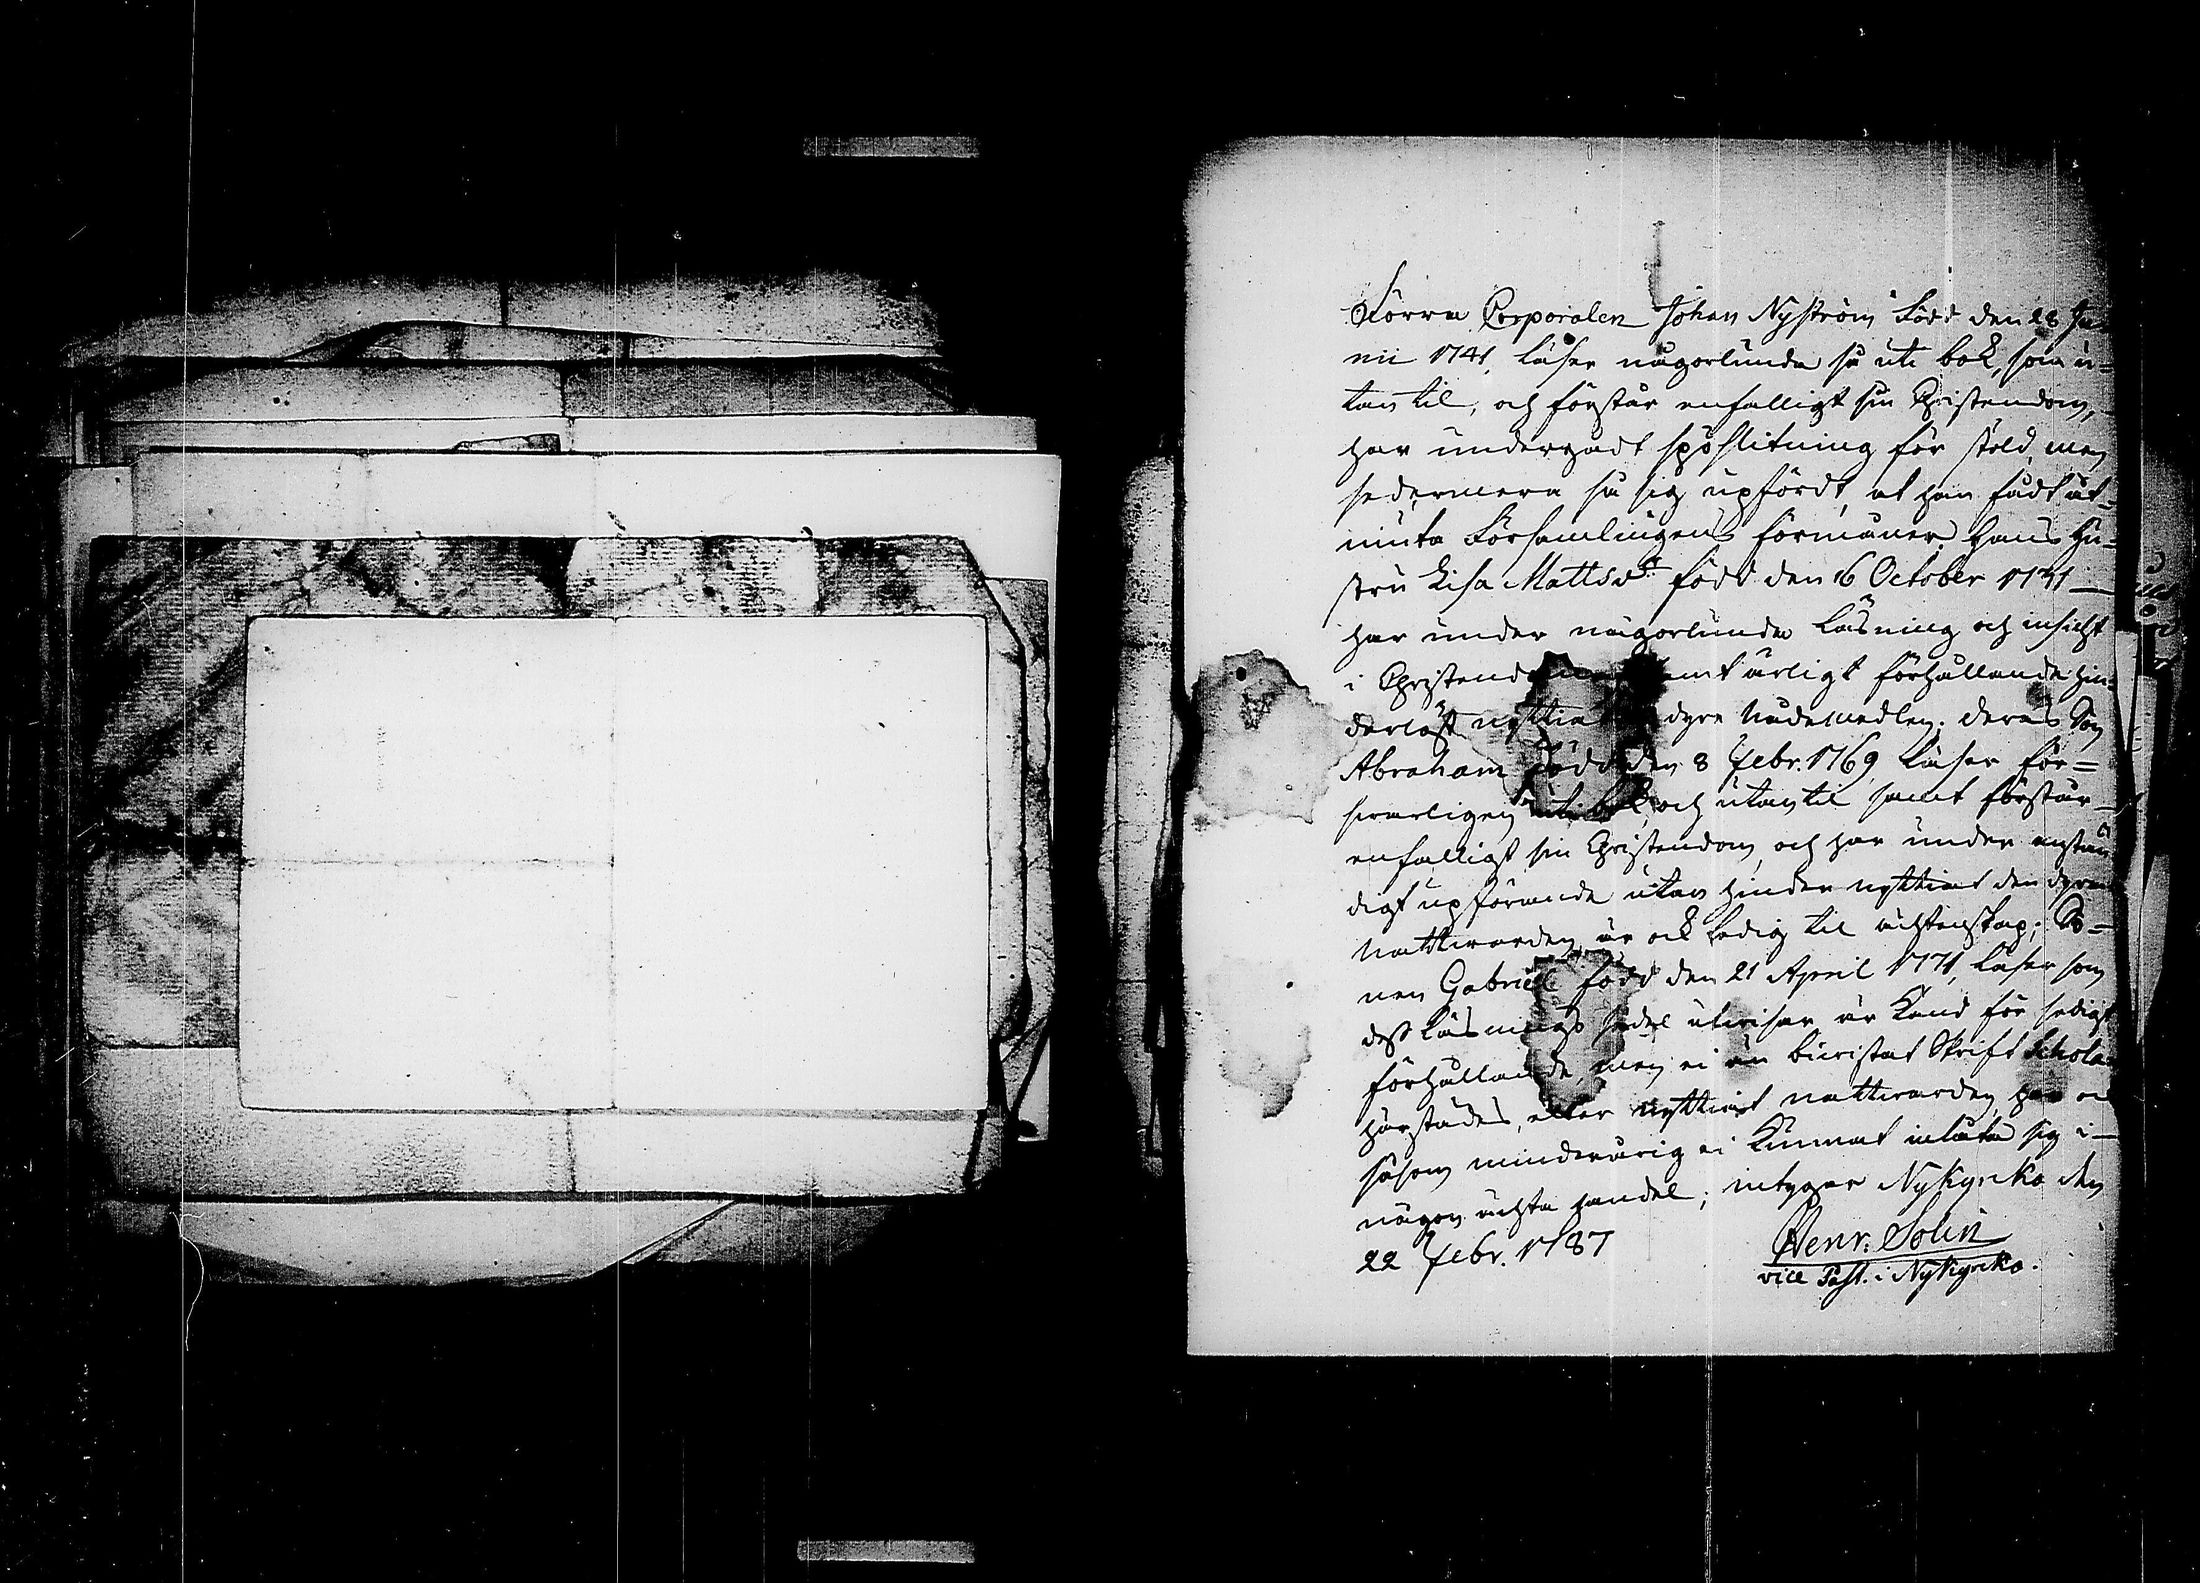 Förra Corporalen Johan Nyström född den 28 Ju-
nii 1741, läser någorlunda så uti bok, som u-
tan til, och förstår enfalligt sin Christendom,
har undergådt spöslitning för stöld, men
sedermera så sig upfördt, at han fådt åt-
niuta Församlingens förmåner. Hans Hu-
stru Lisa Mattsdr född den 16 October 1741
har under någorlunda läsning och insicht
i Christend samt ärligt förhållande hin-
derlöst nyttiat dyre Nådemedlen. deras Son
Abraham född den 8 Febr. 1769, läser för-
svarligen uti bok och utantil samt förstår
enfalligt sin Christendom, och har under anstän
digt upförande utan hinder nyttiat den dyra
Nattvarden, är ock ledig til ächtenskap; So-
nen Gabriel född den 21 April 1771, läser som
dess läsnings sedel utvisar, är känd för sedigt
förhållande, men ei än biivistat Skrift Schola
härstädes, eller nyttiat nattvarden, har och
såsom minderårig ei kunnat inlåta sig i
någon ächta handel; intygar Nykyrko den
22 Febr. 1787
Henr. Solin
vice Past. i Nykyrko.